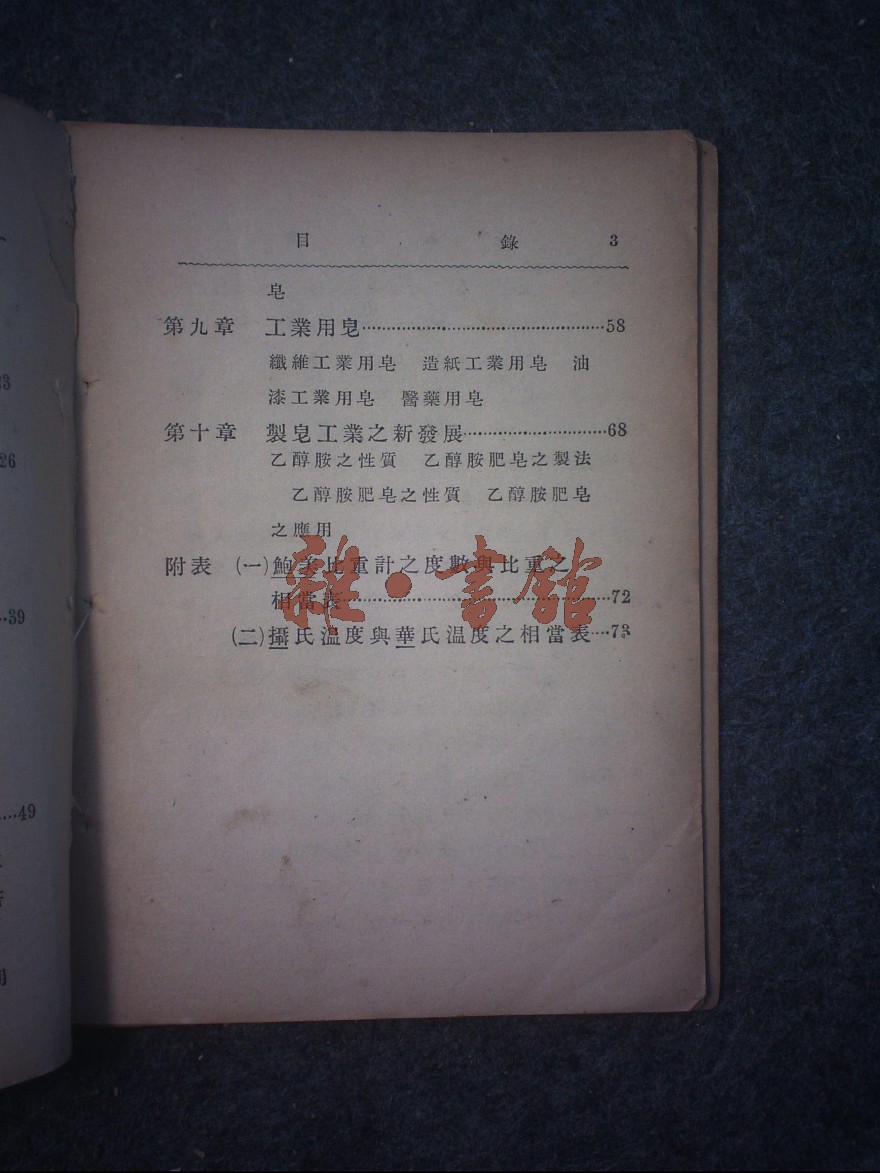 目 錄 3
皂
第九章 工業用皂……………………………………58
纖維工業用皂 造紙工業用皂 油
漆工業用皂 醫藥用皂
第十章 製皂工業之新發展………………………68
乙醇胺之性質 乙醇胺肥皂之製法
乙醇胺肥皂之性質 乙醇胺肥皂
之應用
附表 (一)鮑美比重計之度數與比重之
相當表……………………………………72
(二)攝氏溫度與華氏溫度之相當表…73
雜·書館
26
…39
…49